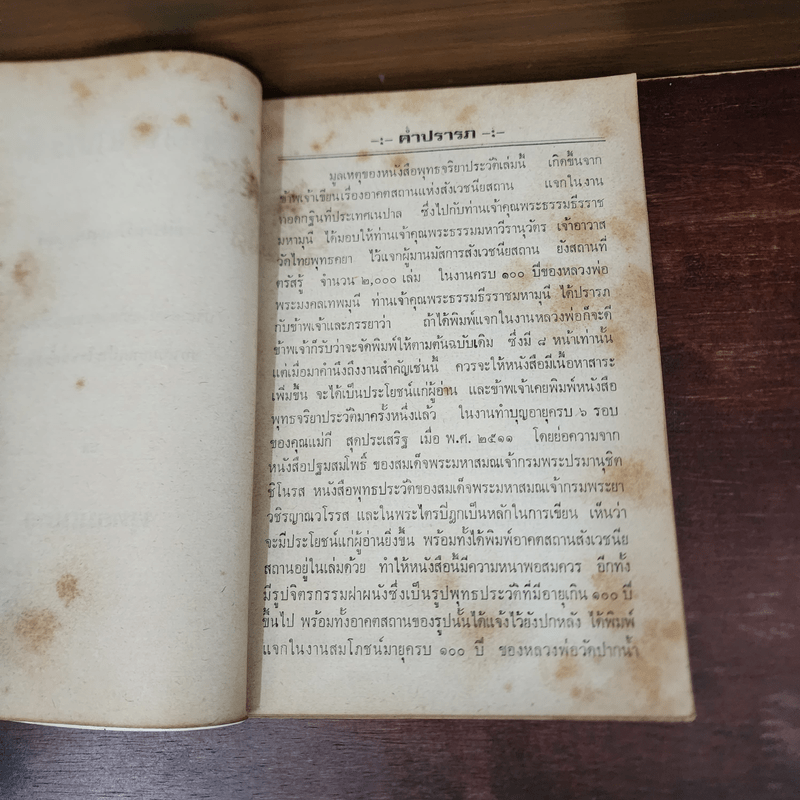 -:- คำปรารภ -:-
มูลเหตุของหนังสือพุทธจริยาประวัติเล่มนี้ เกิดขึ้นจาก
ข้าพเจ้าเขียนเรื่องอาคตสถานแห่งสังเวชนียสถาน แจกในงาน
ทอดกฐินที่ประเทศเนปาล ซึ่งไปกับท่านเจ้าคุณพระธรรมธีรราช
มหามุนี ได้มอบให้ท่านเจ้าคุณพระธรรมมหาวีรานุวัตร เจ้าอาวาส
วัดไทยพุทธคยา ไว้แจกผู้มานมัสการสังเวชนียสถาน ยังสถานที่
ตรัสรู้ จำนวน ๒,๐๐๐ เล่ม ในงานครบ ๑๐๐ ปีของหลวงพ่อ
พระมงคลเทพมุนี ท่านเจ้าคุณพระธรรมธีรราชมหามุนี ได้ปรารภ
กับข้าพเจ้าและภรรยาว่า ถ้าได้พิมพ์แจกในงานหลวงพ่อก็จะดี
ข้าพเจ้าก็รับว่าจะจัดพิมพ์ให้ตามต้นฉบับเดิม ซึ่งมี ๘ หน้าเท่านั้น
แต่เมื่อมาคำนึงถึงงานสำคัญเช่นนี้ ควรจะให้หนังสือมีเนื้อหาสาระ
เพิ่มขึ้น จะได้เป็นประโยชน์แก่ผู้อ่าน และข้าพเจ้าเคยพิมพ์หนังสือ
พุทธจริยาประวัติมาครั้งหนึ่งแล้ว ในงานทำบุญอายุครบ ๖ รอบ
ของคุณแม่กี สุดประเสริฐ เมื่อ พ.ศ. ๒๕๑๑ โดยย่อความจาก
หนังสือปฐมสมโพธิ์ ของสมเด็จพระมหาสมณเจ้ากรมพระปรมานุชิต
ชิโนรส หนังสือพุทธประวัติของสมเด็จพระมหาสมณเจ้ากรมพระยา
วชิรญาณวโรรส และในพระไตรปิฎกเป็นหลักในการเขียน เห็นว่า
จะมีประโยชน์แก่ผู้อ่านยิ่งขึ้น พร้อมทั้งได้พิมพ์อาคตสถานสังเวชนีย
สถานอยู่ในเล่มด้วย ทำให้หนังสือนี้มีความหนาพอสมควร อีกทั้ง
มีรูปจิตรกรรมฝาผนังซึ่งเป็นรูปพุทธประวัติที่มีอายุเกิน ๑๐๐ ปี
ขึ้นไป พร้อมทั้งอาคตสถานของรูปนั้นได้แจ้งไว้ยังปกหลัง ได้พิมพ์
แจกในงานสมโภชน์มายุครบ ๑๐๐ ปี ของหลวงพ่อวัดปากน้ำ